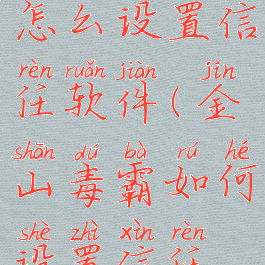 怎么设置信
rèn ruǎn jiàn jīn
任软件(金
shān dú bà rú hé
山毒霸如何
shè zhì xìn rèn
设置信任